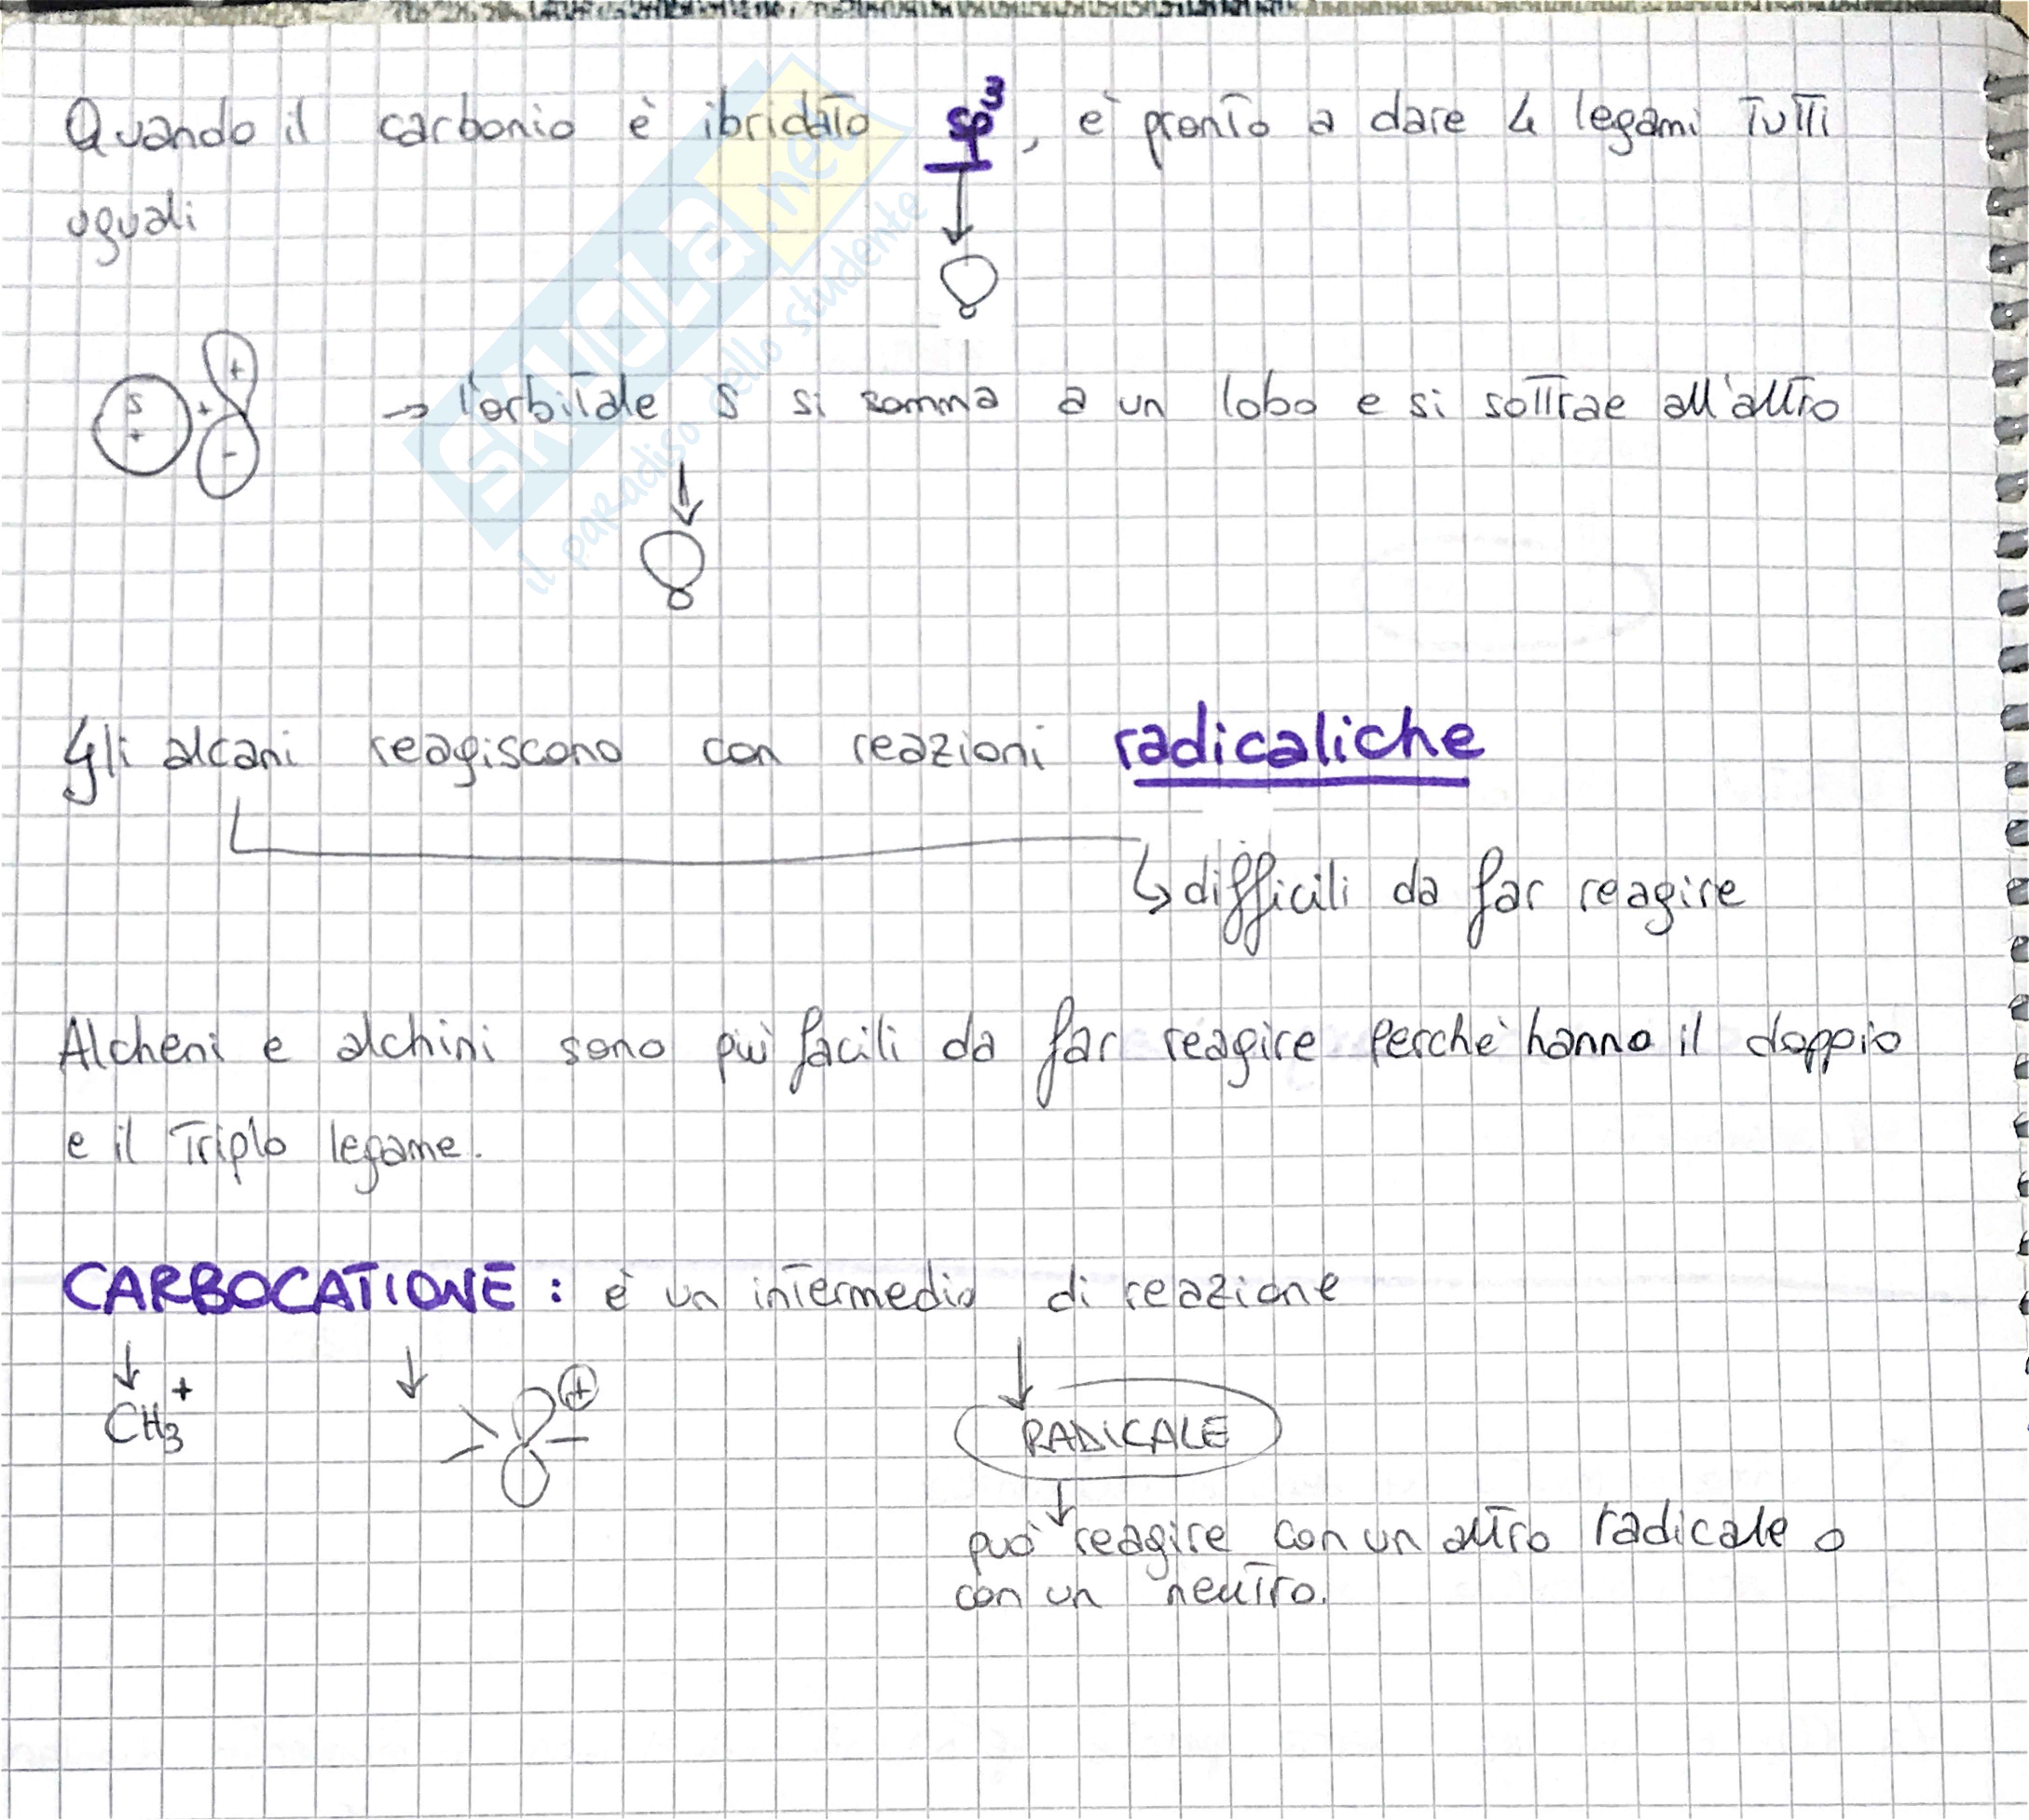 Quando il carbonio è ibridato sp³, è pronto a dare 4 legami tutti
uguali
S
+
+
+
-
→ l'orbitale S si somma a un lobo e si sottrae all'altro
Gli alcani reagiscono con reazioni radicaliche
↳ difficili da far reagire
Alcheni e alchini sono più facili da far reagire perchè hanno il doppio
e il triplo legame.
CARBOCATIONE: è un intermedio di reazione
CH₃⁺
+
RADICALE
può reagire con un altro radicale o
con un neutro.
SKUOLA.net
il paradiso dello studente